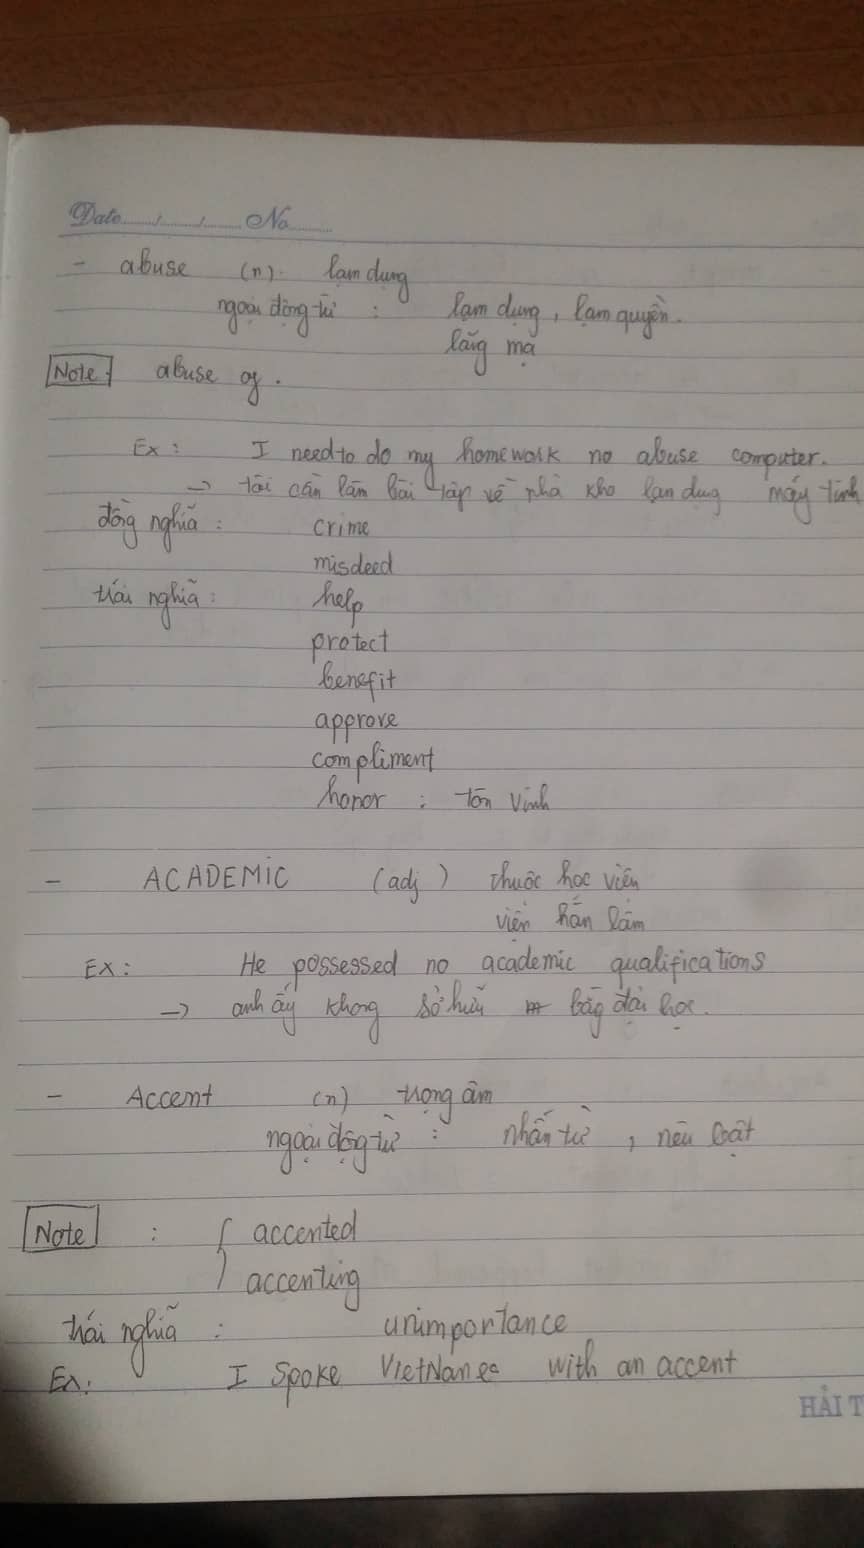 Date ..... / ..... / ..... No ......
- abuse (n). lạm dụng
ngoại động từ : lạm dụng, lạm quyền.
lăng mạ
Note abuse of.
Ex : I need to do my homework no abuse computer.
→ tôi cần làm bài tập về nhà kho lạn dụg máy tính
đồng nghĩa : crime
misdeed
trái nghĩa : help
protect
benefit
approve
compliment
honor : tôn vinh
- ACADEMIC (adj) thuộc học viên
viện hàn lâm
Ex : He possessed no academic qualifications
→ anh ấy không sở hữu bằg đại học.
- Accent (n) trọng âm
ngoại động từ : nhấn từ , nêu bật
Note : { accented
accenting
trái nghĩa : unimportance
Ex : I spoke VietNanes with an accent
HẢI T